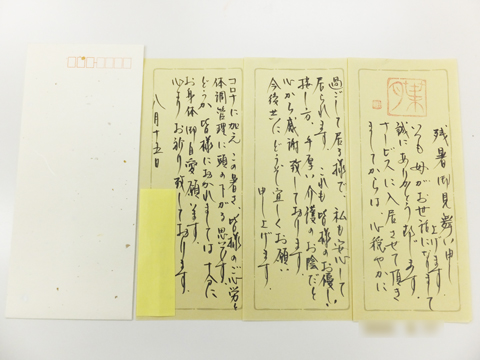 残暑御見舞い申
上げます
いつも母がお世話になりまして
誠にありがとう御ざいます。
サービスに入居させて頂き
ましてからは、心穏やかに
過ごして居る様で、私も安心して
居られます。これも皆様のお優しい
接し方、手厚い介護のお陰だと
心から感謝致しております。
今後共にどうぞ宜しくお願い
申し上げます。
コロナに加え、この暑さ、皆様のご心労と
体調管理に頭の下がる思いです。
どうか、皆様におかれましては、十分に
お身体御自愛願います。
心よりお祈り致しております。
八月十五日